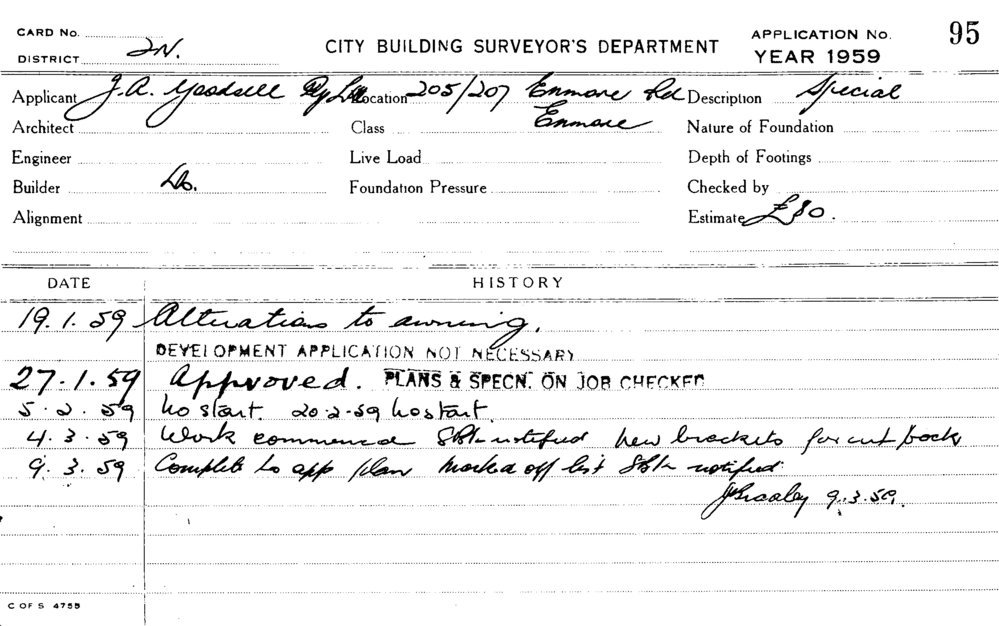 CARD No. APPLICATION No. 95
DISTRICT 2N. CITY BUILDING SURVEYOR'S DEPARTMENT YEAR 1959
Applicant J.A. Goodsell Pty Ltd Location 205/207 Enmore Rd Description Special
Architect Class Enmore Nature of Foundation
Engineer Live Load Depth of Footings
Builder Do. Foundation Pressure Checked by
Alignment Estimate £80.
DATE HISTORY
19.1.59 Alterations to awning.
DEVELOPMENT APPLICATION NOT NECESSARY
27.1.59 Approved. PLANS & SPECN. ON JOB CHECKED
5.2.59 No start. 20.2.59 No start.
4.3.59 Work commenced notified new brackets for cut back
9.3.59 Complete to app plan marked off list notified
9.3.59.
C OF S 4755